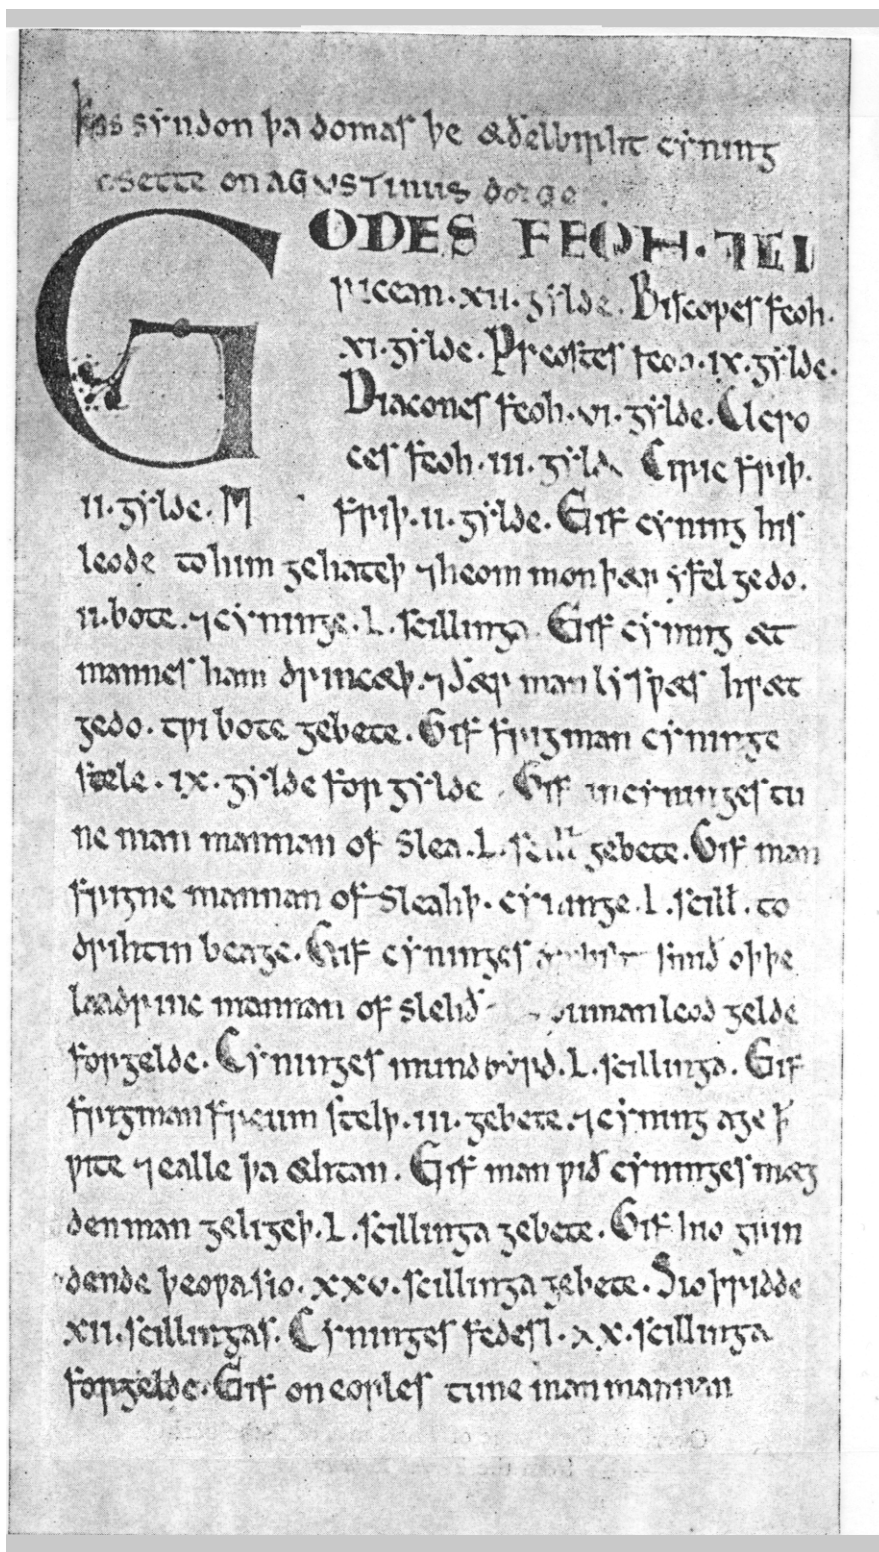 Þas syndon þa domas þe æðelbirht cyning
asette on AGVSTinus dæge.
GODES FEOH. ⁊ CI
ricean .xii. gylde. Biscopes feoh.
xi. gylde. Preostes feoh .ix. gylde.
Diacones feoh .vi. gylde. Clero
ces feoh .iii. gylde. Ciric friþ.
ii. gylde. M friþ .ii. gylde. Gif cyning his
leode to him gehateþ ⁊ heom mon þær yfel gedo.
ii. bote. ⁊ cyninge .L. scillinga. Gif cyning æt
mannes ham drincæþ. ⁊ ðær man lyswæs hwæt
gedo. twi bote gebete. Gif frigman cyninge
stele .ix. gylde forgylde. Gif in cyninges tu
ne man mannan of slea .L. scill gebete. Gif man
frigne mannan of sleahþ. cyninge .L. scill. to
drihtin beage. Gif cyninges smid oþþe
laadrinc mannan of slehð leod gelde
forgelde. Cyninges mundbyrd .L. scillinga. Gif
frigman freum stelþ .iii. gebete. ⁊ cyning age þ̄
wite ⁊ ealle þa æhtan. Gif man wið cyninges mæg
denman geligeþ .L. scillinga gebete. Gif hio grin
dende þeowa sio. xxv. scillinga gebete. Sio þridde
xii. scillingas. Cyninges fedesl .xx. scillinga
forgelde. Gif on eorles tune man mannan